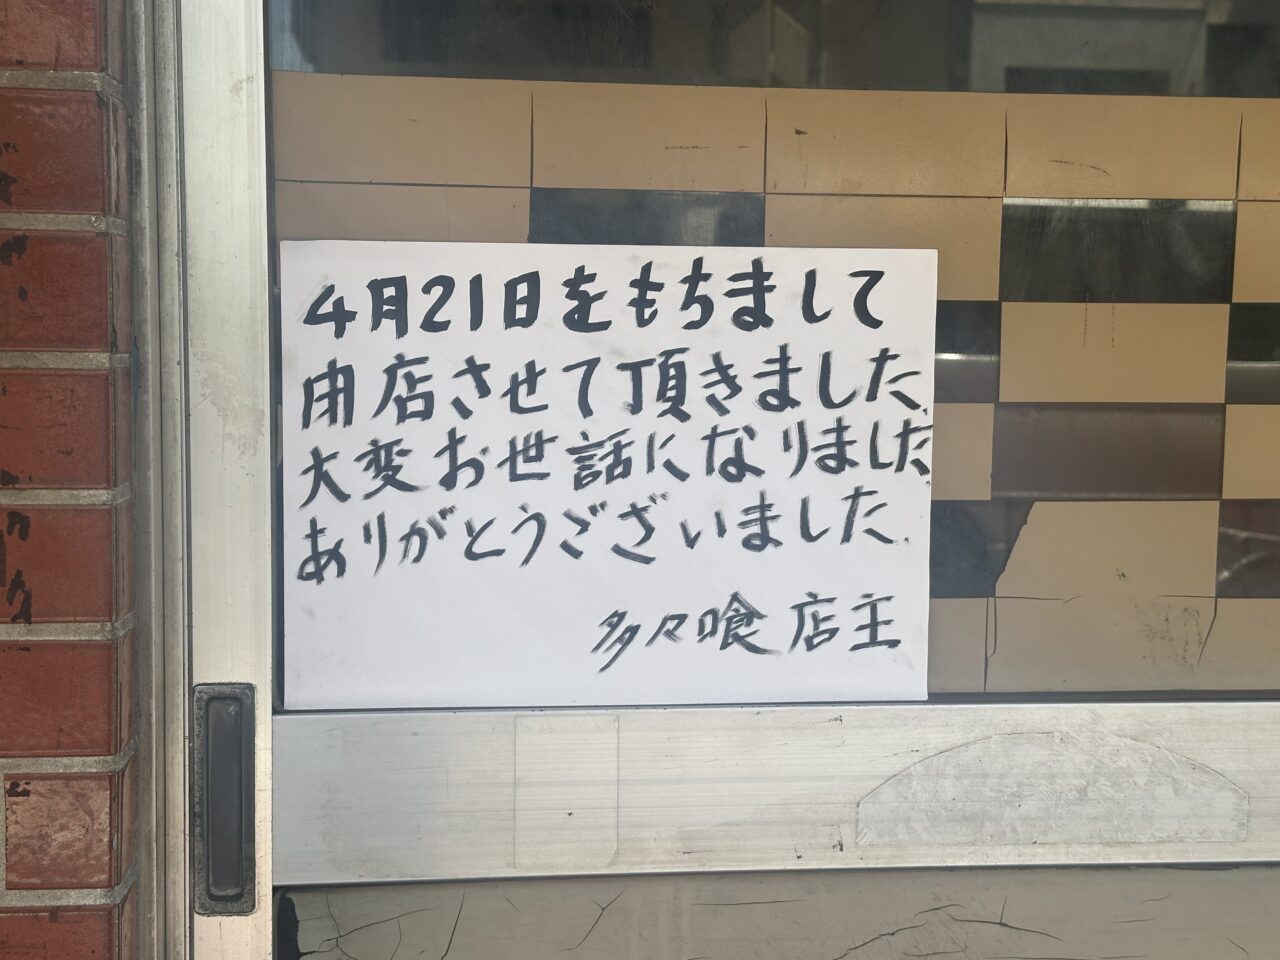 4月21日をもちまして
閉店させて頂きました.
大変お世話になりました.
ありがとうございました.
多々喰 店主